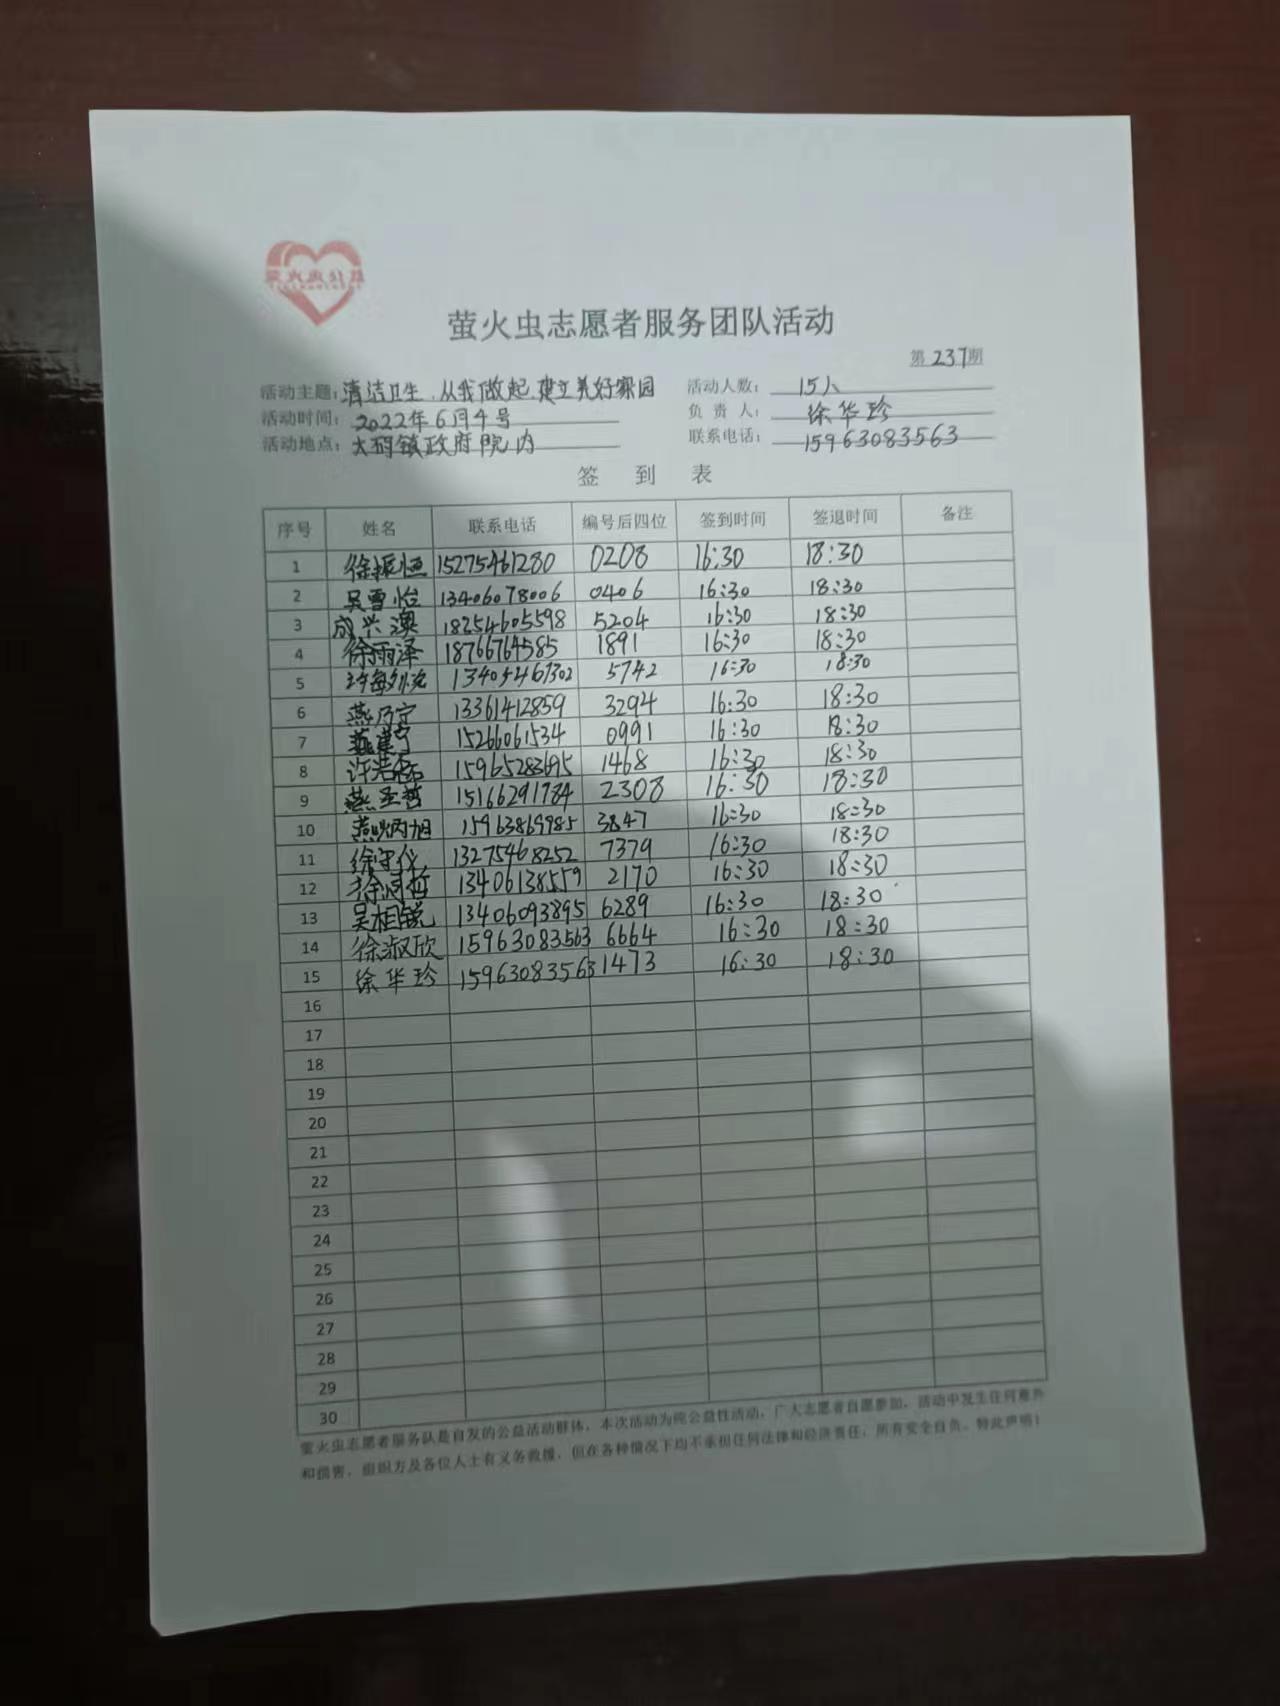 萤火虫公益
萤火虫志愿者服务团队活动
第237期
活动主题：清洁卫生.从我做起.建立美好家园 活动人数：15人
活动时间：2022年6月4号 负责人：徐华珍
活动地点：大码镇政府院内 联系电话：15963083563
签到表
序号 姓名 联系电话 编号后四位 签到时间 签退时间 备注
1 徐振恒 15275461280 0208 16:30 18:30
2 吴雪怡 13406078006 0406 16:30 18:30
3 成兴澳 18254605598 5204 16:30 18:30
4 徐雨泽 18766764585 1891 16:30 18:30
5 13405467302 5742 16:30 18:30
6 燕乃宁 13361412859 3294 16:30 18:30
7 15266061534 0991 16:30 18:30
8 许浩 15965283695 1468 16:30 18:30
9 燕圣哲 15166291784 2308 16:30 18:30
10 15963869985 3847 16:30 18:30
11 徐守仪 13275468252 7379 16:30 18:30
12 13406138559 2170 16:30 18:30
13 吴相锐 13406093895 6289 16:30 18:30
14 徐淑欣 15963083563 6664 16:30 18:30
15 徐华珍 15963083563 1473 16:30 18:30
16
17
18
19
20
21
22
23
24
25
26
27
28
29
30
萤火虫志愿者服务队是自发的公益活动群体，本次活动为纯公益性活动，广大志愿者自愿参加，活动中发生任何意外
和损害，组织方及各位人士有义务救援，但在各种情况下均不承担任何法律和经济责任，所有安全自负。特此声明！